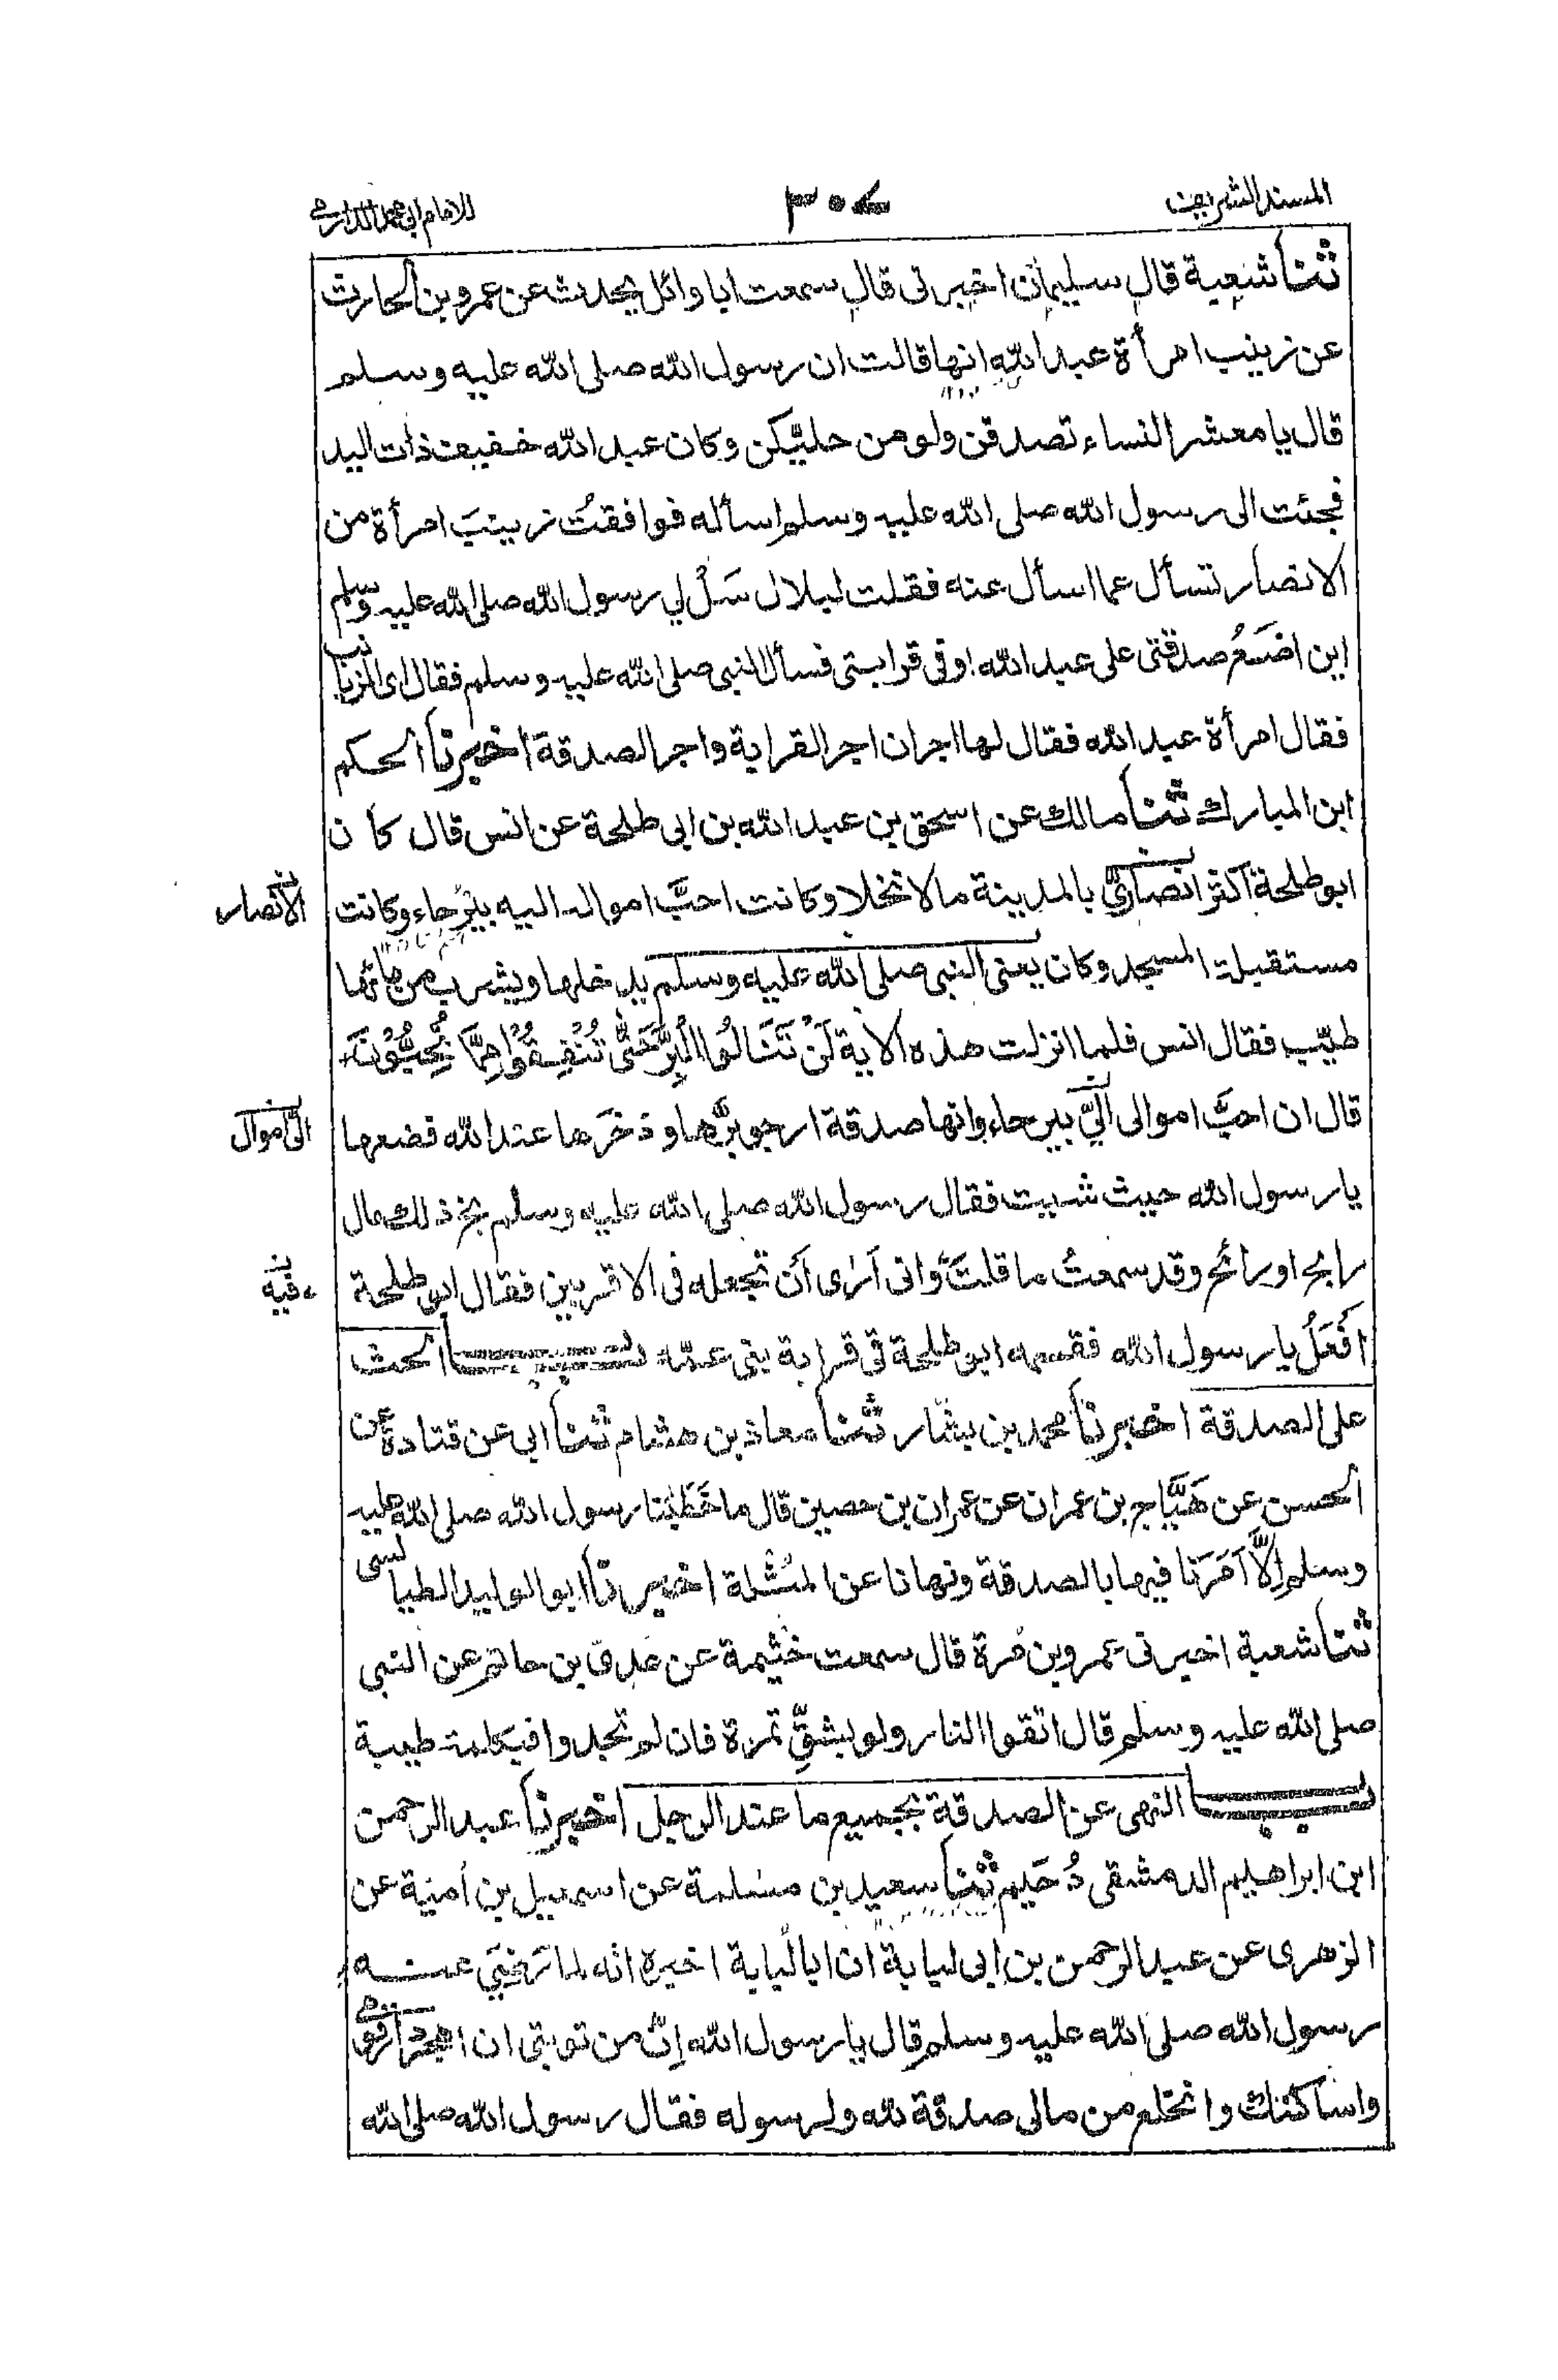 المسند الشريف ٣٠٧ للامام ابي محمد الدارمي
ثنا شعبة قال سليمان اخبرني قال سمعت ابا وائل يحدث عن عمرو بن الحارث
عن زينب امرأة عبد الله انها قالت ان رسول الله صلى الله عليه وسلم
قال يا معشر النساء تصدقن ولو من حليّكن وكان عبد الله خفيف ذات اليد
فجئت الى رسول الله صلى الله عليه وسلم اسأله فوافقتُ زينبَ امرأة من
الانصار تسأل عما اسأل عنه فقلت لبلال سَلْ لي رسول الله صلى الله عليه وسلم
اين اضَعُ صدقتى على عبد الله او فى قرابتى فسأل النبى صلى الله عليه وسلم فقال اى الزيانب
فقال امرأة عبد الله فقال لها اجران اجر القرابة واجر الصدقة اخبرنا الحكم
ابن المبارك ثنا مالك عن اسحق بن عبد الله بن ابى طلحة عن انس قال كان
ابو طلحة اكثر انصاريٍّ بالمدينة مالا نخلا وكانت احبَّ امواله اليه بيْرحاء وكانت
الانصار
مستقبلة المسجد وكان يعنى النبى صلى الله عليه وسلم يدخلها ويشرب من مائها
طيّب فقال انس فلما انزلت هذه الاية لَنْ تَنَالُوا الْبِرَّ حَتّٰى تُنْفِقُوْا مِمَّا تُحِبُّوْنَ
قال ان احبَّ اموالى اليَّ بيرحاء وانها صدقة ارجو برَّها وذخرَها عند الله فضعها
الىّ اموال
يا رسول الله حيث شيت فقال رسول الله صلى الله عليه وسلم بخ ذلك مال
رابح او رائح وقد سمعتُ ما قلتَ وانى اَرٰى اَن تجعله فى الاقربين فقال ابو طلحة
فيه
اَفْعَلُ يا رسول الله فقسمه ابو طلحة فى قرابة بنى عمّه باب الحث
على الصدقة اخبرنا محمد بن بشّار ثنا معاذ بن هشام ثنا ابى عن قتادة عن
الحسن عن هَيَّاج بن عمران عن عمران بن حصين قال ما خَطَبَنا رسول الله صلى الله عليه
وسلم اِلَّا اَمَرَنا فيها بالصدقة ونهانا عن المُثْلة اخبرنا ابو الوليد الطيالسى
ثنا شعبة اخبرنى عمرو بن مُرة قال سمعت خثيمة عن عدى بن حاتم عن النبى
صلى الله عليه وسلم قال اتقوا النار ولو بشقِّ تمرة فان لم تجدوا فبكلمة طيبة
باب النهى عن الصدقة بجميع ما عند الرجل اخبرنا عبد الرحمن
ابن ابراهيم الدمشقى دُحَيم ثنا سعيد بن مسلمة عن اسمعيل بن اُمية عن
الزهرى عن عبد الرحمن بن ابى لبابة ان ابا لُبابة اخبره انه لما رَضِيَ عنه
رسول الله صلى الله عليه وسلم قال يا رسول الله اِنّ من توبتى ان اهجر دار قومى
واساكنك وانخلع من مالى صدقة لله ولرسوله فقال رسول الله صلى الله